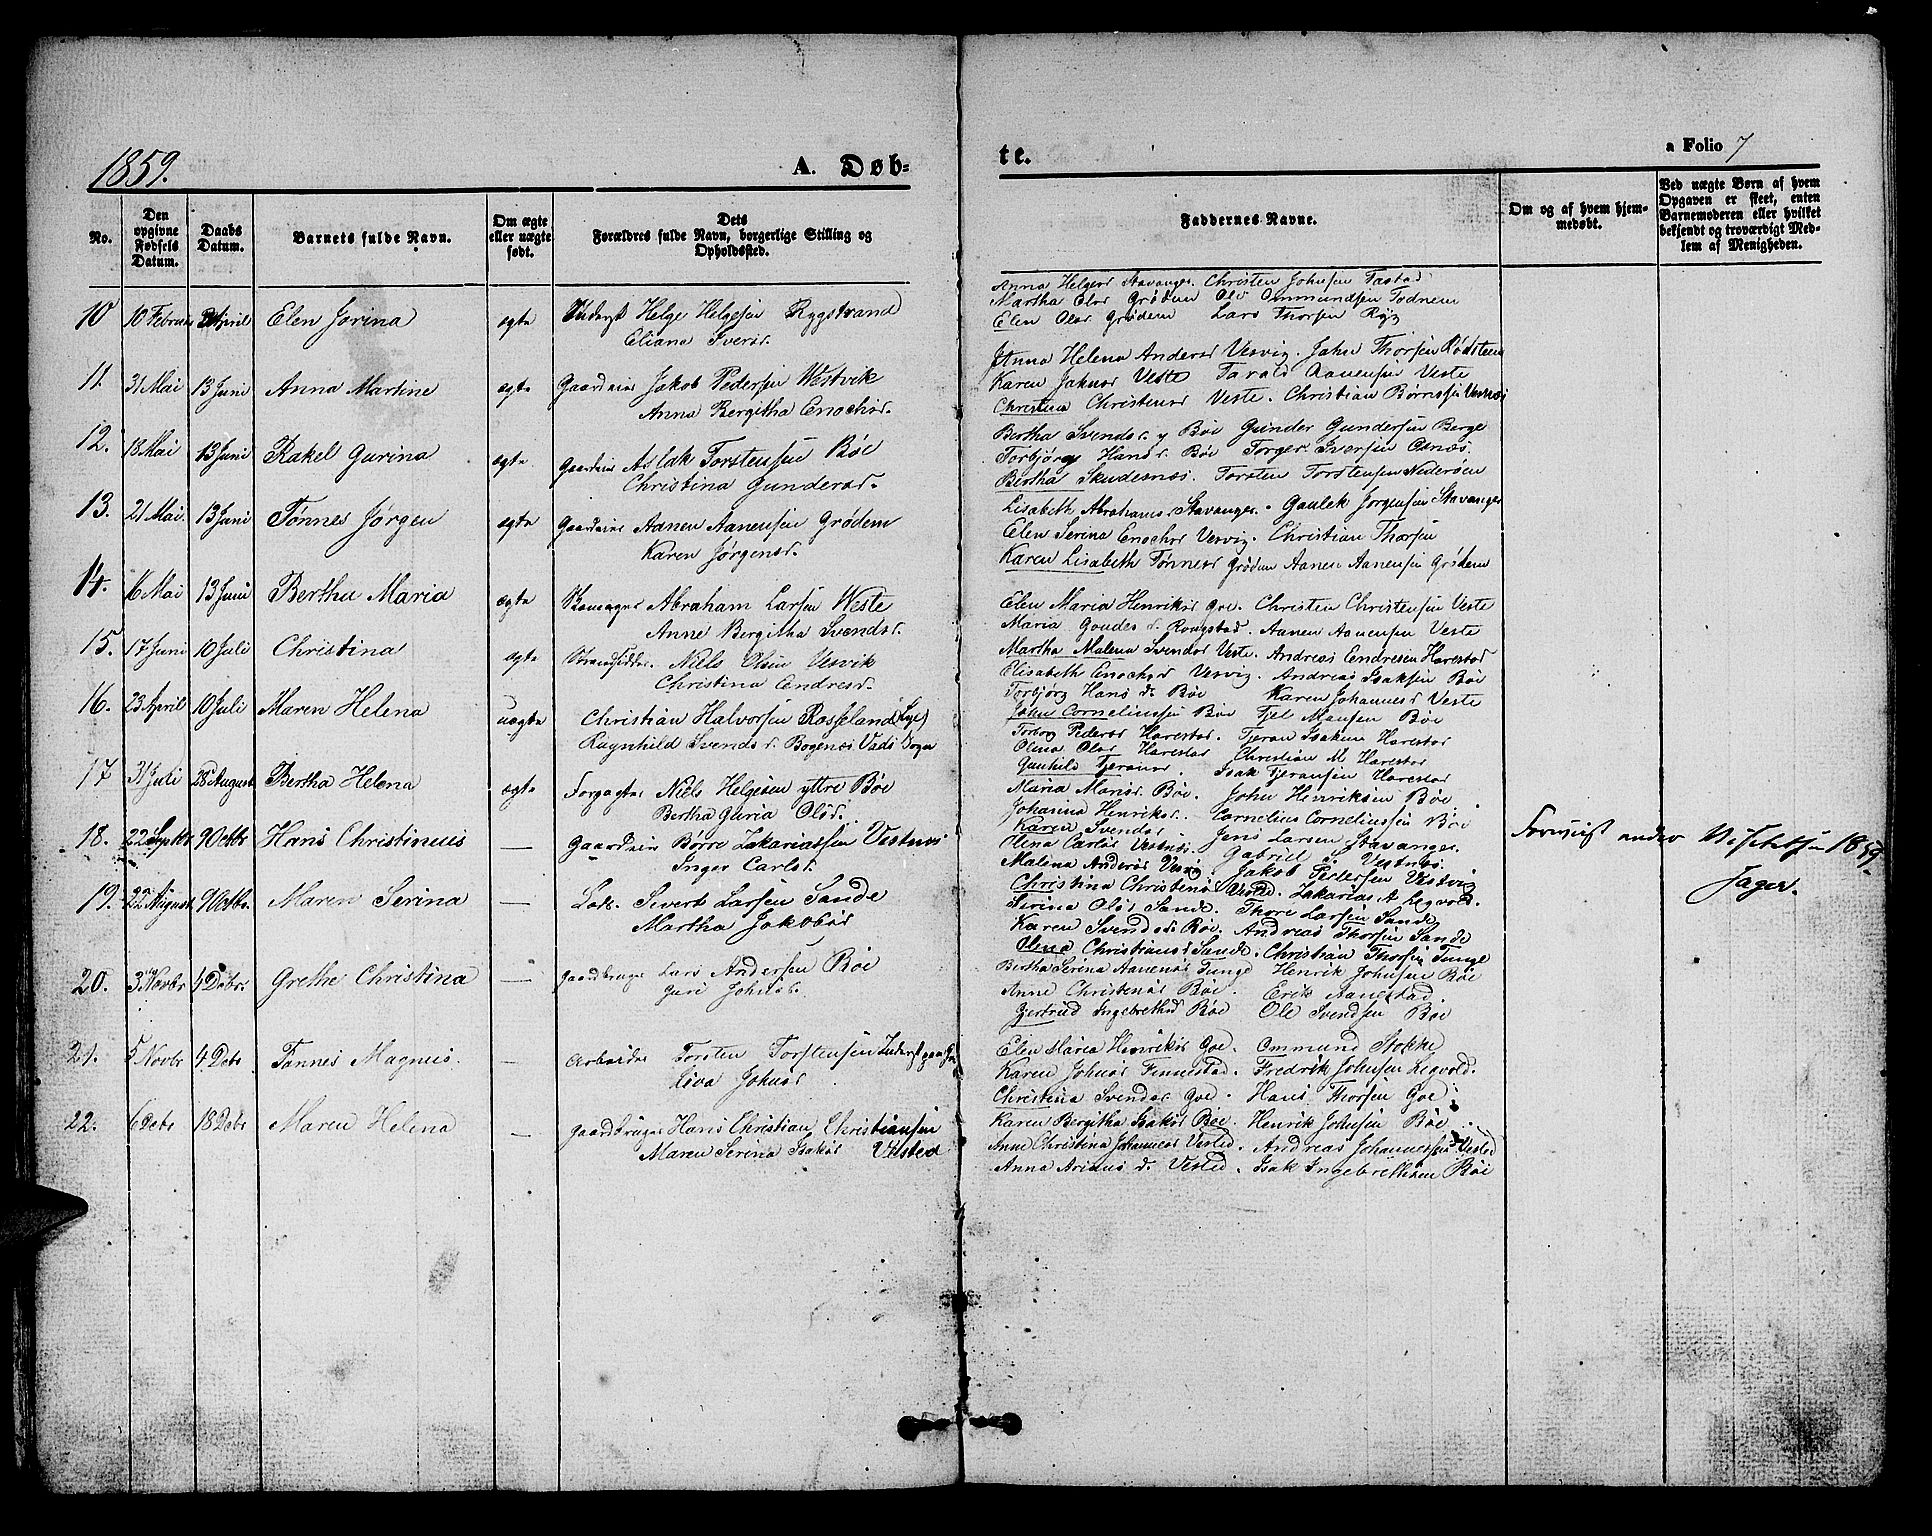 1859.
A. Døb-
te.
a Folio 7
No.
Den opgivne Fødsels Datum.
Daabs Datum.
Barnets fulde Navn.
Om ægte eller uægte født.
Dets Forældres fulde Navn, borgerlige Stilling og Opholdssted.
Faddernes Navne.
Om og af hvem hjemmedøbt.
Ved uægte Børn af hvem Opgaven er skeet, enten Barnemoderen eller hvilket bekjendt og troværdigt Medlem af Menigheden.
10 10 Februar April Elen Jorina ægte Inderst Helge Helgesen Rygstrand
Eliana Iversd.
Anna Helgesd Stavanger. Christen Johnsen Tastad
Martha Olsd Grødem Ole Ommundsen Todnem
Elen Olsd Grødem Lars Thorsen Ryg
11. 31 Mai 13 Juni Anna Martine ægte Gaardeier Jakob Pedersen Westvik
Anna Bergitha Enochsd.
Anna Helena Andersd Vesvig. John Thorsen Rødsteen
Karen Johnsd Veste Tarald Aanensen Veste
Christina Christensd Veste. Christian Børresen Vesnes
12. 18 Mai 13 Juni Rakel Gurina ægte Gaardeier Aslak Torstensen Bøe
Christina Gundersd.
Bertha Svendsd. y Bøe Gunder Gundersen Berge
Torbjørg Hansd. Bøe Torger Iversen
Bertha Skudesnæs. Torsten Torstensen Nederøen
13. 21 Mai. 13 Juni Tønnes Jørgen ægte Gaardeier Aanen Aanensen Grødem
Karen Jørgensd.
Lisabeth Abrahamsd. Stavanger. Gaulek Jørgensen Stavanger
Elen Serina Enochsd Vesvig. Christian Thorsen
Karen Lisabeth Tønnesd Grødem Aanen Aanensen Grødem
14. 16 Mai 13 Juni Bertha Maria ægte Skomager Abraham Larsen Weste
Anne Bergitha Svendsd.
Elen Maria Henriksd Goe. Christen Christensen Veste
Maria Goudesd. Rongstad. Aanen Aanensen Veste
Martha Malena Svendsd Veste. Andreas Endresen Harestad
15. 17 Juni 10 Juli Christina ægte Strandsidder. Niels Olsen Vesvik
Christina Endresd.
Elisabeth Enochsd Vesvig. Andreas Isaksen Bøe
Torbjørg Hansd. Bøe Karen Johannesd Veste
John Corneliussen Bøe Tjel Mansen Bøe
16. 23 April 10 Juli Maren Helena uægte Christian Halvorsen Rosseland (Lye)
Ragnhild Svendsd. Bogenæs Vads Sogn
Torborg Pedersd Harestad. Tjeran Isaksen Harestad
Olena Olsd Harestad Christian M Harestad
Gunhild Tjeransd. Isak Tjeransen Harestad
17 31 Juli 28 August Bertha Helena ægte Forpagter Niels Helgesen yttre Bøe
Bertha Guria Olsd.
Maria Mansd. Bøe. John Henriksen Bøe.
Johanna Henriksd. Cornelius Corneliussen Bøe
Karen Svendsd Jens Larsen Stavanger.
18. 22 Septbr 9 Octbr Hans Christinus — Gaardeier Børre Zakariassen Vestnes
Inger Carlsd.
Olena Carlsd Vestnes. Gabriel Vestnæs.
Malena Andersd Vesvig Jakob Pedersen Vestvig
Christina Christensd Vested. Zakarias A Legvold.
19. 22 August 9 Octbr. Maren Serina — Lods. Sivert Larsen Sande
Martha Jakobsd
Serina Olsd Sande. Thore Larsen Sande
Karen Svendsd Bøe. Andreas Thorsen Sande
Olena Christiansd Sande. Christian Thorsen Tunge
20. 3 Novbr 4 Debr. Grethe Christina — Gaardbruger Lars Andersen Bøe
Guri Johnsd.
Bertha Serina Aanensd Tunge Henrik Johnsen Bøe
Anne Christensd Bøe. Erik Aanestad.
Gjertrud Ingebrethsd Bøe Ole Svendsen Bøe
21. 5 Novbr 4 Debr Tønnes Magnus. — Arbeider Torsten Torstensen Inderst paa
Siva Johnsd.
Elen Maria Henriksd Goe. Ommund Stokke
Karen Johnsd Finnestad. Fredrik Johnsen Legvold.
Christina Svendsd Goe. Hans Thorsen Goe.
22. 6 Debr 18 Debr Maren Helena — Gaardbruger Hans Christian Christiansen
Maren Serina Isaksd Vested
Karen Bergitha Isaksd Bøe. Henrik Johnsen Bøe
Anne Christina Johannesd Vested. Andreas Johannessen Vested
Anna Ariansd. Vested. Isak Ingebrethsen Bøe
Forevist under Visitatsen 1859.
Jager.